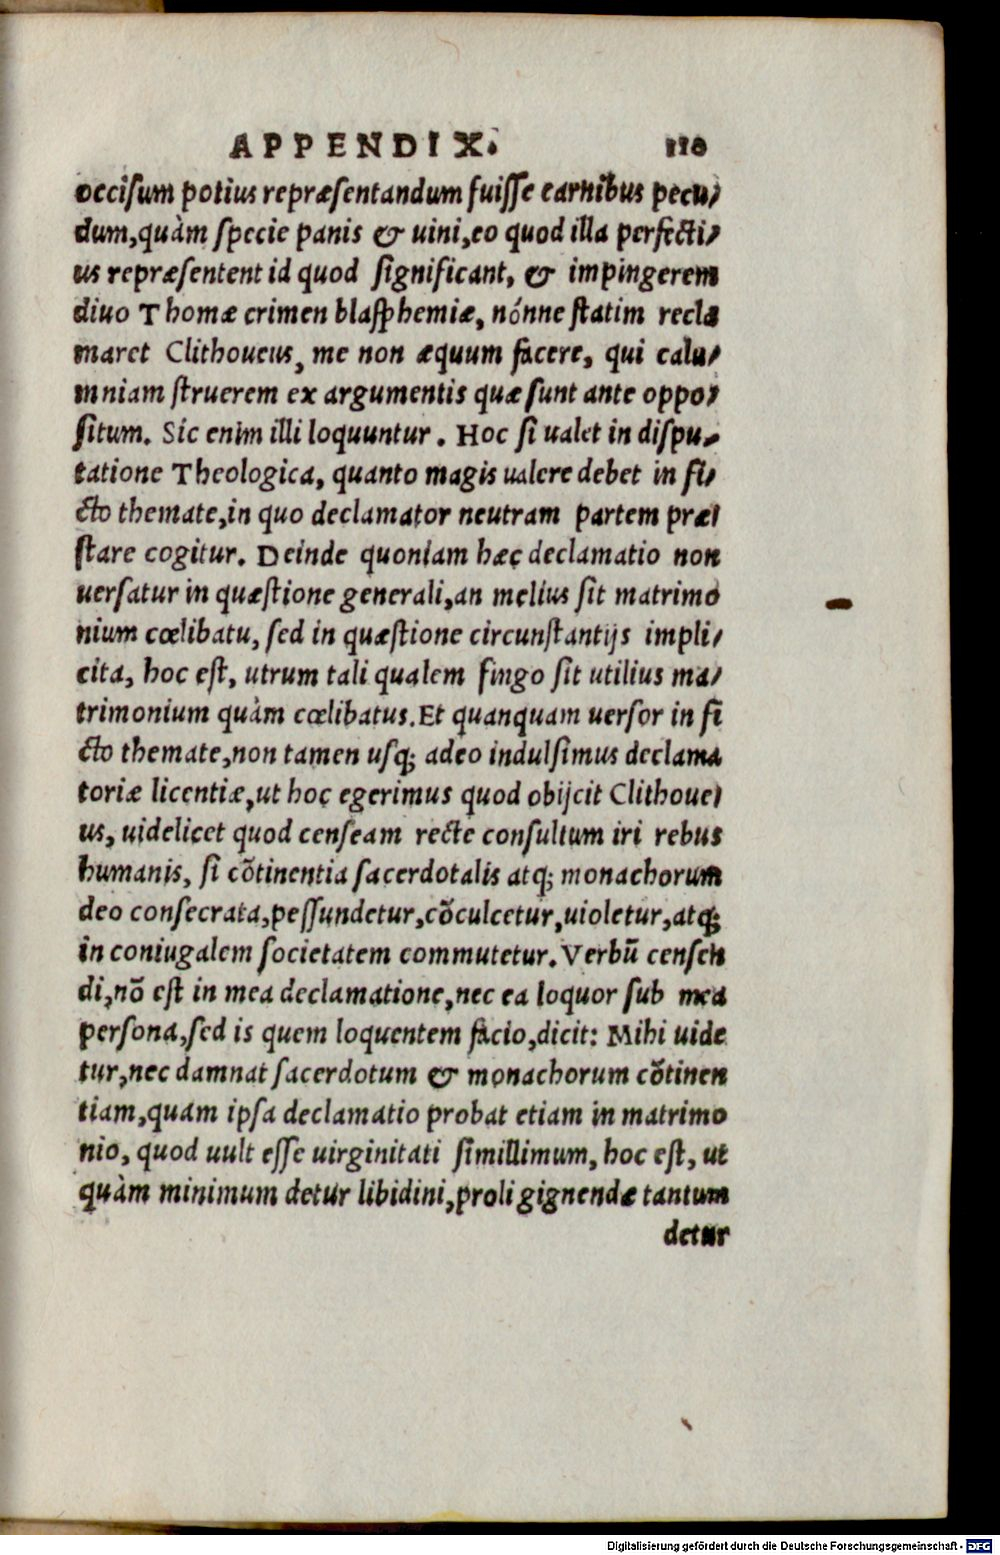 APPENDIX. 110
occisum potius repræsentandum fuisse carnibus pecu/
dum, quàm specie panis & uini, eo quod illa perfecti/
us repræsentent id quod significant, & impingerem
diuo Thomæ crimen blasphemiæ, nónne statim recla
maret Clithoueus, me non æquum facere, qui calu/
mniam struerem ex argumentis quæ sunt ante oppo/
situm. Sic enim illi loquuntur. Hoc si ualet in dispu/
tatione Theologica, quanto magis ualere debet in fi/
cto themate, in quo declamator neutram partem præ/
stare cogitur. Deinde quoniam hæc declamatio non
uersatur in quæstione generali, an melius sit matrimo
nium cœlibatu, sed in quæstione circunstantijs impli/
cita, hoc est, utrum tali qualem fingo sit utilius ma/
trimonium quàm cœlibatus. Et quanquam uersor in fi
cto themate, non tamen usq; adeo indulsimus declama
toriæ licentiæ, ut hoc egerimus quod obijcit Clithoue/
us, uidelicet quod censeam recte consultum iri rebus
humanis, si cõtinentia sacerdotalis atq; monachorum
deo consecrata, pessundetur, cõculcetur, uioletur, atq;
in coniugalem societatem commutetur. Verbũ censen
di, nõ est in mea declamatione, nec ea loquor sub mea
persona, sed is quem loquentem facio, dicit: Mihi uide
tur, nec damnat sacerdotum & monachorum cõtinen
tiam, quam ipsa declamatio probat etiam in matrimo
nio, quod uult esse uirginitati simillimum, hoc est, ut
quàm minimum detur libidini, proli gignendæ tantum
detur
Digitalisierung gefördert durch die Deutsche Forschungsgemeinschaft - DFG